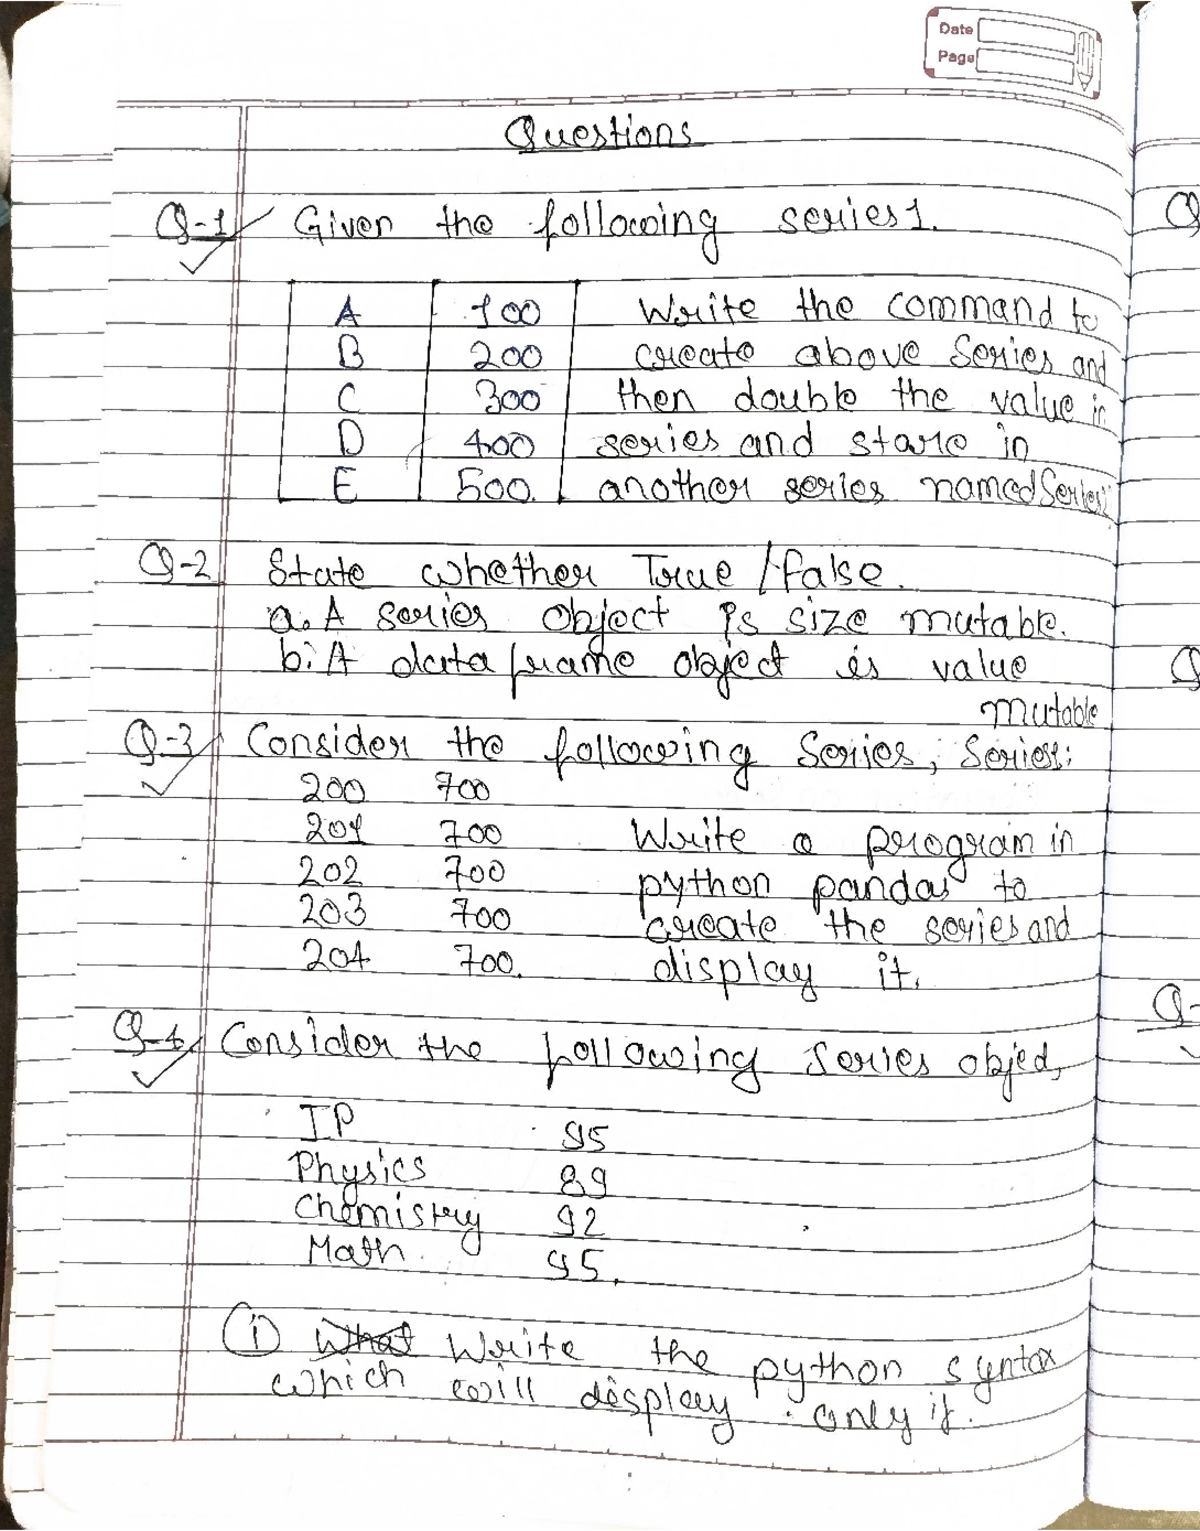 Date
Page
Questions
Q-1 Given the following series1.
A 100 Write the command to
B 200 create above Series and
C 300 then double the value in
D 400 series and store in
E 500. another series named
Q-2 State whether True / false.
a. A series object is size mutable.
b. A data frame object is value
mutable
Q-3 Consider the following Series,
200 700
201 700 Write a program in
202 700 python pandas to
203 700 create the series and
204 700. display it.
Q-4 Consider the following Series object,
IP 95
Physics 89
Chemistry 92
Math. 95.
(i) What Write the python syntax
which will display only